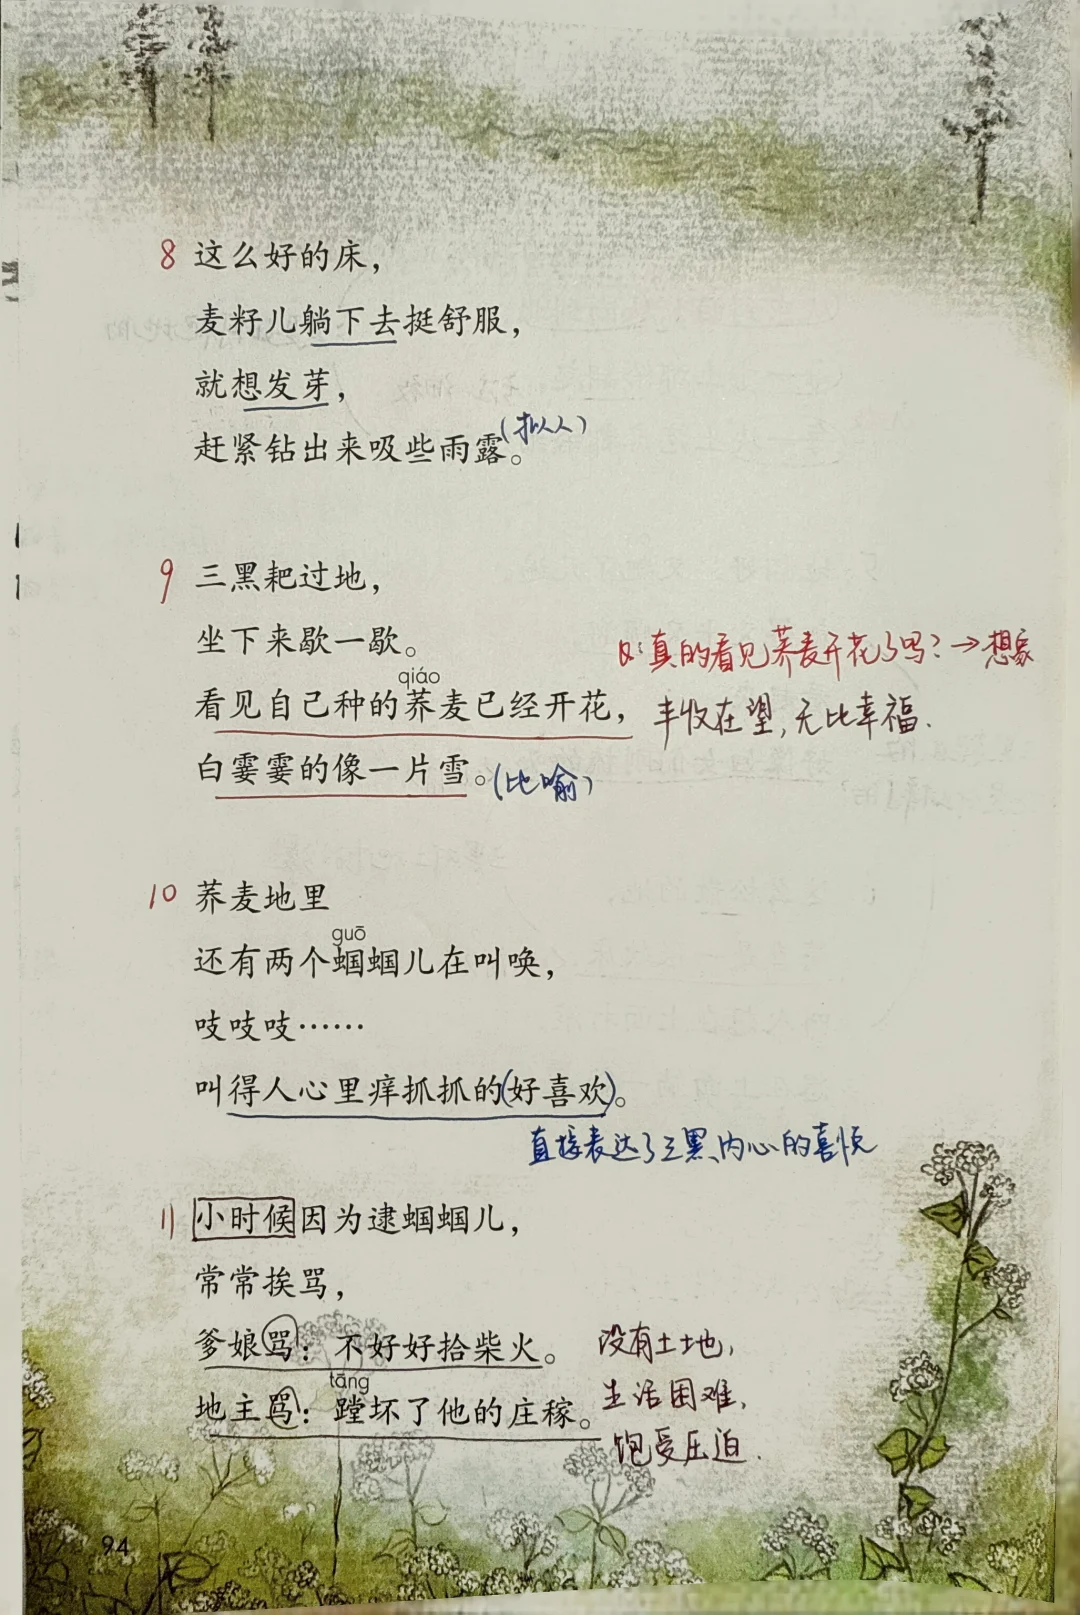 8 这么好的床，
麦籽儿躺下去挺舒服，
就想发芽，
赶紧钻出来吸些雨露。(拟人)
9 三黑耙过地，
坐下来歇一歇。
:真的看见荞麦开花了吗？→想象
qiáo
看见自己种的荞麦已经开花，
丰收在望，无比幸福.
白霎霎的像一片雪。(比喻)
10 荞麦地里
guō
还有两个蝈蝈儿在叫唤，
吱吱吱……
叫得人心里痒抓抓的(好喜欢)。
直接表达了三黑内心的喜悦
11 小时候因为逮蝈蝈儿，
常常挨骂，
爹娘骂：不好好拾柴火。
没有土地，
tāng
地主骂：蹚坏了他的庄稼。
生活困难，
饱受压迫.
94